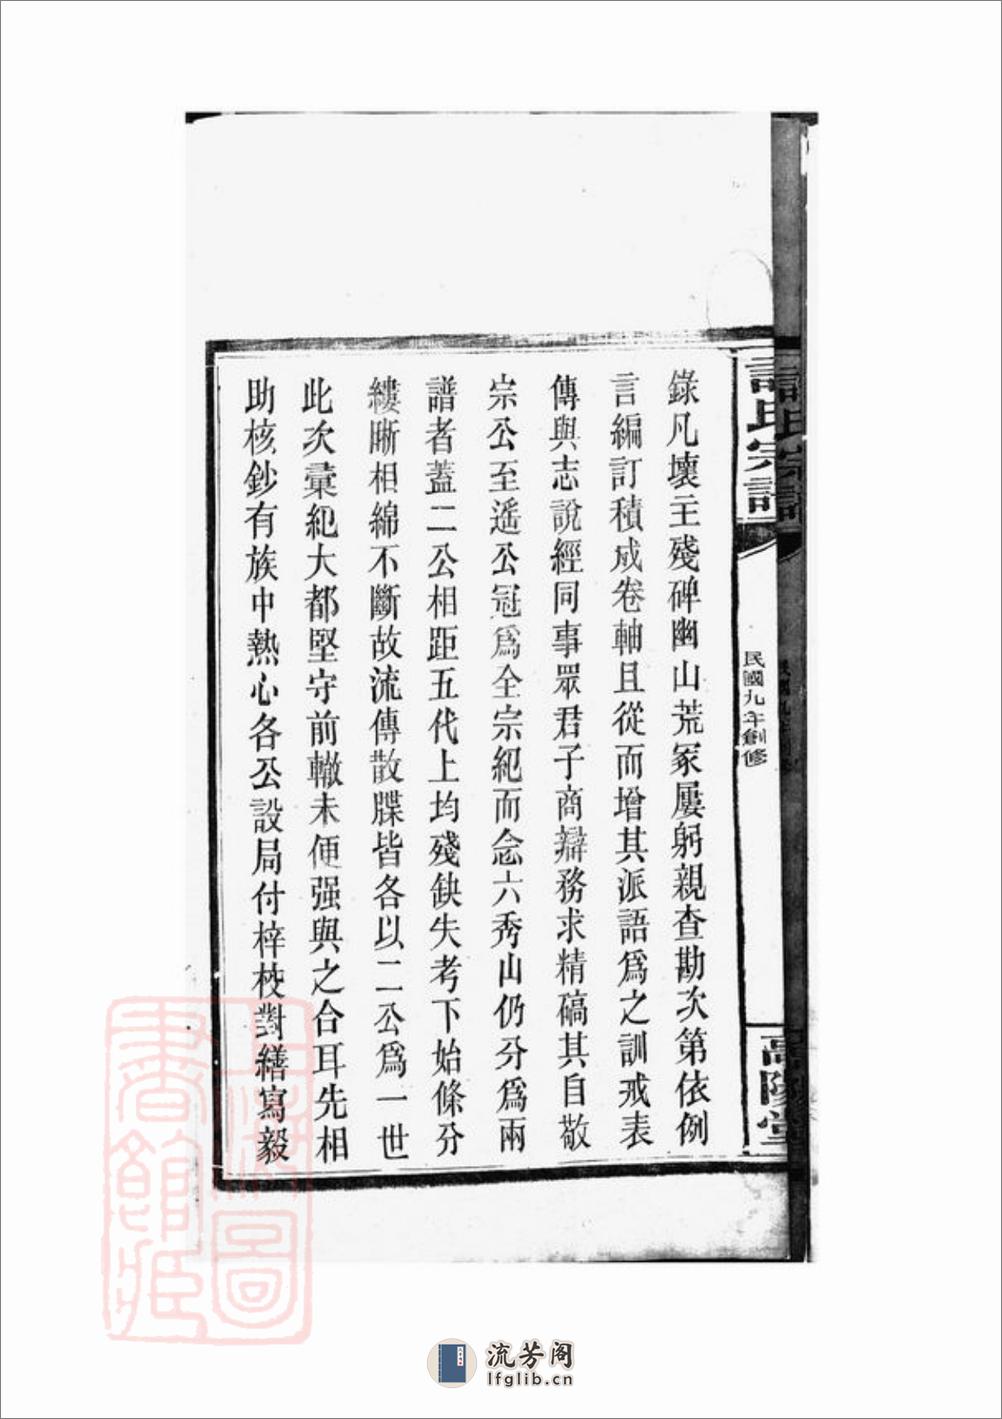 許氏宗譜
民國九年創修
高陽堂
錄凡壞主殘碑幽山荒冢屢躬親查勘次第依例
言編訂積成卷軸且從而增其派語爲之訓戒表
傳與志說經同事眾君子商辯務求精碻其自敬
宗公至遥公冠爲全宗紀而念六秀山仍分爲兩
譜者蓋二公相距五代上均殘缺失考下始條分
縷晣相綿不斷故流傳散牒皆各以二公爲一世
此次彙紀大都堅守前轍未便强與之合耳先相
助核鈔有族中熱心各公設局付梓校對繕寫毅
上海圖
書館藏
流芳阁
lfglib.cn